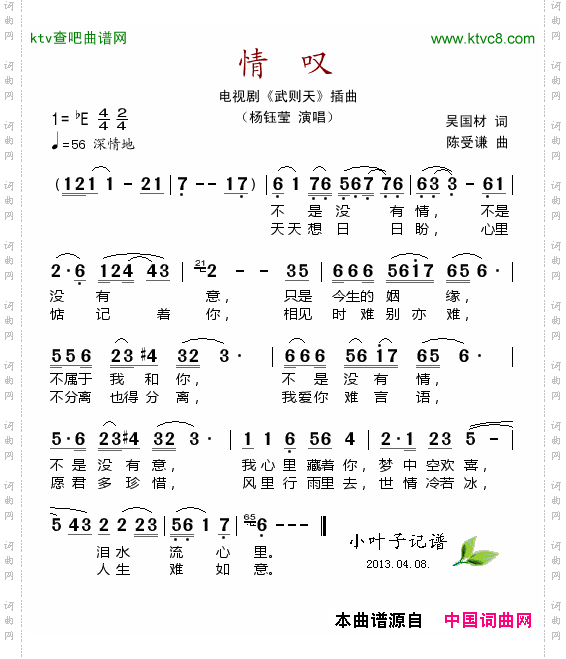 ktv查吧曲谱网
www.ktvc8.com
情 叹
电视剧《武则天》插曲
（杨钰莹 演唱）
1=♭E 4/4 2/4
吴国材 词
♩=56 深情地
陈受谦 曲
(1 2 1 1 - 2 1 | 7 - - 1 7) | 6 1 7 6 5 6 7 7 6 | 6 3 3 - 6 1 |
不 是 没 有 情， 不是
天 天 想 日 日 盼， 心里
2 · 6 1 2 4 4 3 | 21 2 - - 3 5 | 6 6 6 5 6 1 7 6 5 6 · |
没 有 意， 只是 今生的 姻 缘，
惦 记 着 你， 相见 时 难 别 亦 难，
5 5 6 2 3 #4 3 2 3 · | 6 6 6 5 6 1 7 6 5 6 · |
不属于 我 和 你， 不 是 没 有 情，
不分离 也得 分 离， 我爱你 难 言 语，
5 · 6 2 3 #4 3 2 3 · | 1 1 6 5 6 4 | 2 · 1 2 3 5 - |
不 是 没 有 意， 我 心 里 藏着 你，梦 中 空欢 喜，
愿 君 多 珍 惜， 风 里 行 雨里 去，世 情 冷若 冰，
5 4 3 2 2 2 3 | 5 6 1 7 | 65 6 · - - ‖
泪水 流 心 里。
人生 难 如 意。
小叶子记谱
2013.04.08.
本曲谱源自 中国词曲网